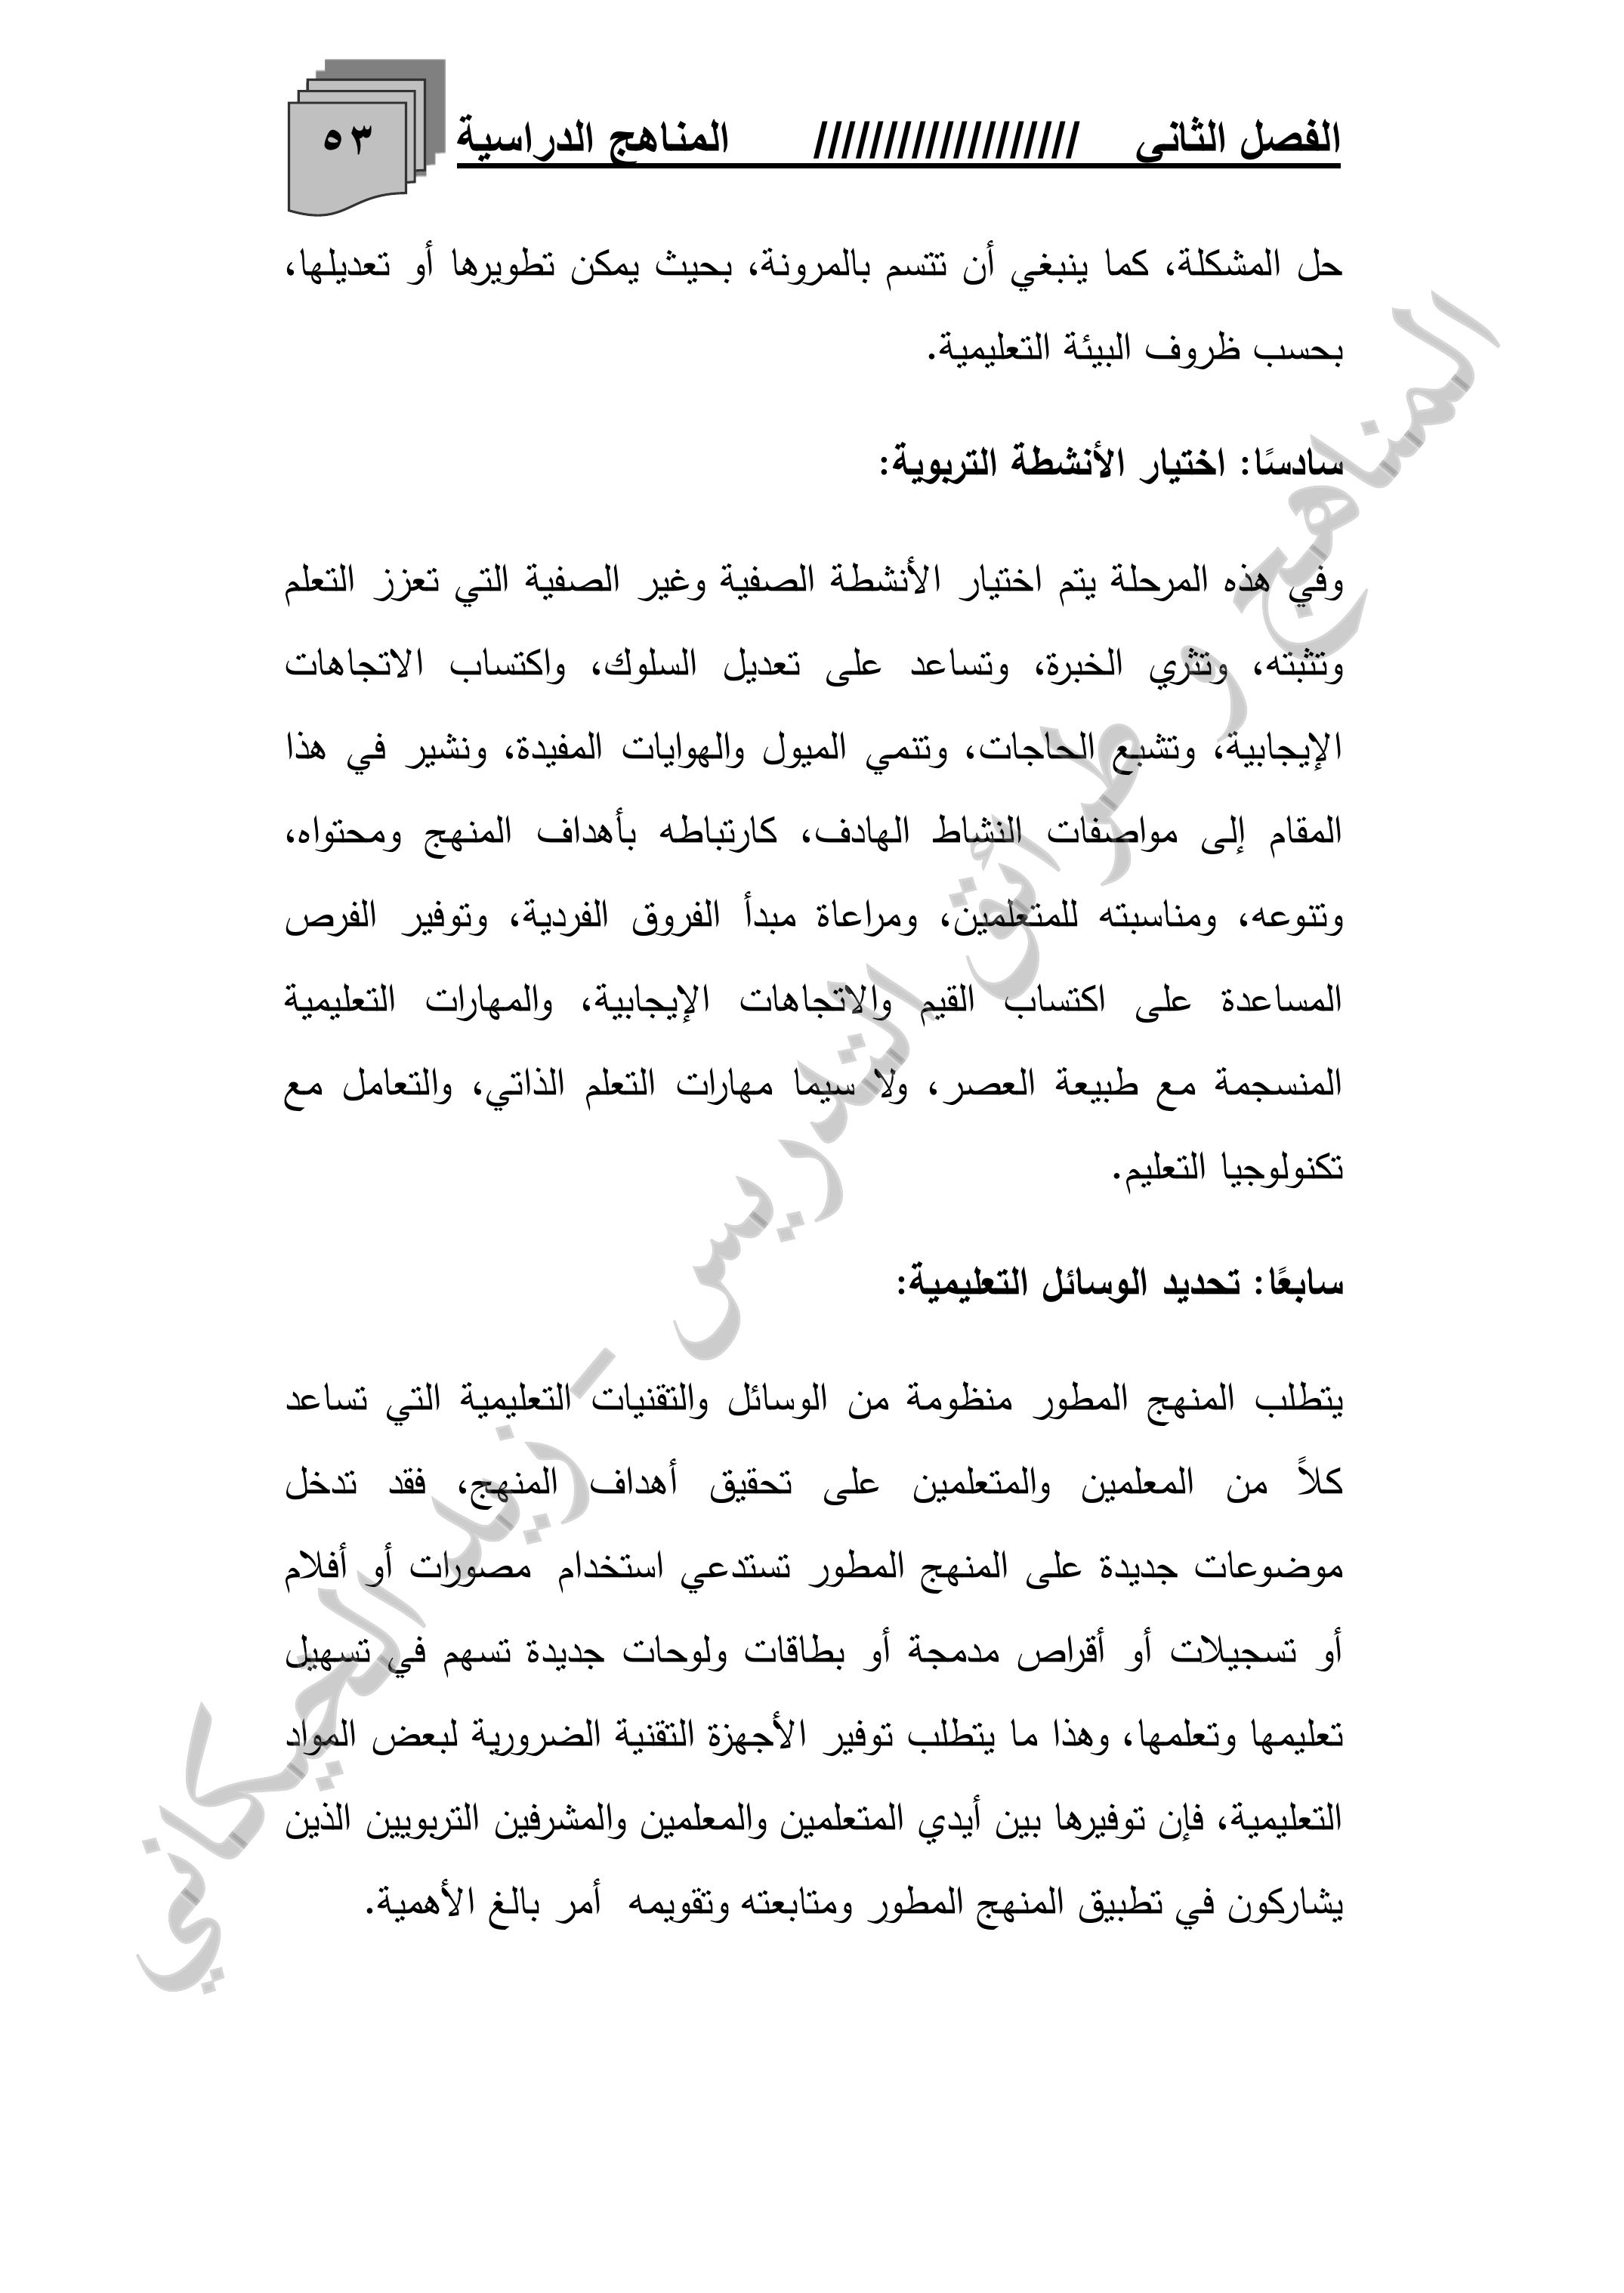 الفصل الثاني /////////////////// المناهج الدراسية ٥٣
حل المشكلة، كما ينبغي أن تتسم بالمرونة، بحيث يمكن تطويرها أو تعديلها،
بحسب ظروف البيئة التعليمية.
سادسًا: اختيار الأنشطة التربوية:
وفي هذه المرحلة يتم اختيار الأنشطة الصفية وغير الصفية التي تعزز التعلم
وتثبته، وتثري الخبرة، وتساعد على تعديل السلوك، واكتساب الاتجاهات
الإيجابية، وتشبع الحاجات، وتنمي الميول والهوايات المفيدة، ونشير في هذا
المقام إلى مواصفات النشاط الهادف، كارتباطه بأهداف المنهج ومحتواه،
وتنوعه، ومناسبته للمتعلمين، ومراعاة مبدأ الفروق الفردية، وتوفير الفرص
المساعدة على اكتساب القيم والاتجاهات الإيجابية، والمهارات التعليمية
المنسجمة مع طبيعة العصر، ولا سيما مهارات التعلم الذاتي، والتعامل مع
تكنولوجيا التعليم.
سابعًا: تحديد الوسائل التعليمية:
يتطلب المنهج المطور منظومة من الوسائل والتقنيات التعليمية التي تساعد
كلاً من المعلمين والمتعلمين على تحقيق أهداف المنهج، فقد تدخل
موضوعات جديدة على المنهج المطور تستدعي استخدام مصورات أو أفلام
أو تسجيلات أو أقراص مدمجة أو بطاقات ولوحات جديدة تسهم في تسهيل
تعليمها وتعلمها، وهذا ما يتطلب توفير الأجهزة التقنية الضرورية لبعض المواد
التعليمية، فإن توفيرها بين أيدي المتعلمين والمعلمين والمشرفين التربويين الذين
يشاركون في تطبيق المنهج المطور ومتابعته وتقويمه أمر بالغ الأهمية.
المناهج و طرائق التدريس - زيد الخيكاني